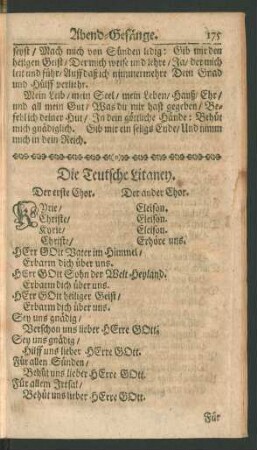 Abend-Gesänge. 175
seyst / Mach mich von Sünden ledig: Gib mir den
heilgen Geist / Der mich weise und lehre / Ja / der mich
leit und führ / Auff daß ich nimmermehr Dein Gnad
und Hülff verliehr.
Mein Leib / mein Seel / mein Leben / Hauß / Ehr /
und all mein Gut / Was du mir hast gegeben / Be-
fehl ich deiner Hut / In dein göttliche Hände: Behüt
mich gnädiglich. Gib mir ein seligs Ende / Und nimm
mich in dein Reich.
Die Teutsche Litaney.
Der erste Chor. Der ander Chor.
Kyrie / Eleison.
Christe / Eleison.
Kyrie / Eleison.
Christe / Erhöre uns.
HErr GOtt Vater im Himmel /
Erbarm dich über uns.
HErr GOtt Sohn der Welt Heyland.
Erbarm dich über uns.
HErr GOtt heiliger Geist /
Erbarm dich über uns.
Sey uns gnädig /
Verschon uns lieber HErre GOtt.
Sey uns gnädig /
Hülff uns lieber HErre GOtt.
Für allen Sünden /
Behüt uns lieber HErre GOtt.
Für allem Irrsal /
Behüt uns lieber HErre GOtt.
Für